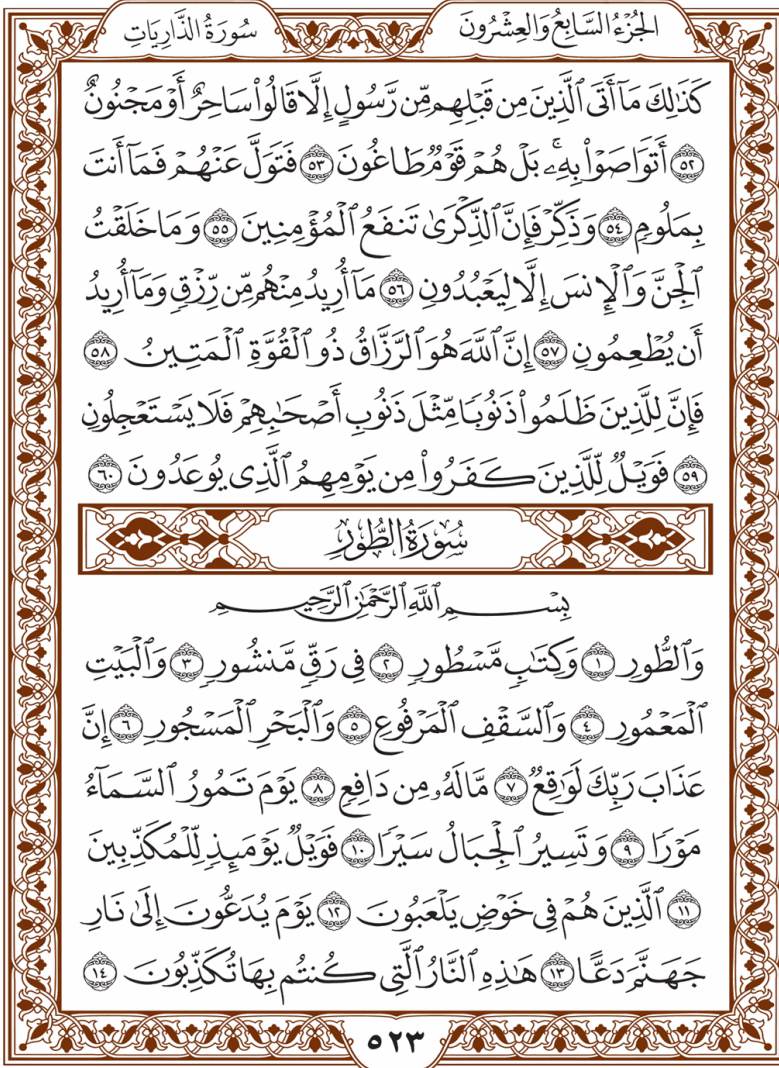 سُورَةُ الذَّارِيَاتِ
الجُزْءُ السَّابِعُ وَالعِشْرُونَ
كَذَٰلِكَ مَآ أَتَى ٱلَّذِينَ مِن قَبْلِهِم مِّن رَّسُولٍ إِلَّا قَالُوا۟ سَاحِرٌ أَوْ مَجْنُونٌ
٥٢ أَتَوَاصَوْا۟ بِهِۦۚ بَلْ هُمْ قَوْمٌ طَاغُونَ ٥٣ فَتَوَلَّ عَنْهُمْ فَمَآ أَنتَ
بِمَلُومٍ ٥٤ وَذَكِّرْ فَإِنَّ ٱلذِّكْرَىٰ تَنفَعُ ٱلْمُؤْمِنِينَ ٥٥ وَمَا خَلَقْتُ
ٱلْجِنَّ وَٱلْإِنسَ إِلَّا لِيَعْبُدُونِ ٥٦ مَآ أُرِيدُ مِنْهُم مِّن رِّزْقٍ وَمَآ أُرِيدُ
أَن يُطْعِمُونِ ٥٧ إِنَّ ٱللَّهَ هُوَ ٱلرَّزَّاقُ ذُو ٱلْقُوَّةِ ٱلْمَتِينُ ٥٨
فَإِنَّ لِلَّذِينَ ظَلَمُوا۟ ذَنُوبًا مِّثْلَ ذَنُوبِ أَصْحَٰبِهِمْ فَلَا يَسْتَعْجِلُونِ
٥٩ فَوَيْلٌ لِّلَّذِينَ كَفَرُوا۟ مِن يَوْمِهِمُ ٱلَّذِى يُوعَدُونَ ٦٠
سُورَةُ الطُّورِ
بِسْمِ ٱللَّهِ ٱلرَّحْمَٰنِ ٱلرَّحِيمِ
وَٱلطُّورِ ١ وَكِتَٰبٍ مَّسْطُورٍ ٢ فِى رَقٍّ مَّنشُورٍ ٣ وَٱلْبَيْتِ
ٱلْمَعْمُورِ ٤ وَٱلسَّقْفِ ٱلْمَرْفُوعِ ٥ وَٱلْبَحْرِ ٱلْمَسْجُورِ ٦ إِنَّ
عَذَابَ رَبِّكَ لَوَٰقِعٌ ٧ مَّا لَهُۥ مِن دَافِعٍ ٨ يَوْمَ تَمُورُ ٱلسَّمَآءُ
مَوْرًا ٩ وَتَسِيرُ ٱلْجِبَالُ سَيْرًا ١٠ فَوَيْلٌ يَوْمَئِذٍ لِّلْمُكَذِّبِينَ
١١ ٱلَّذِينَ هُمْ فِى خَوْضٍ يَلْعَبُونَ ١٢ يَوْمَ يُدَعُّونَ إِلَىٰ نَارِ
جَهَنَّمَ دَعًّا ١٣ هَٰذِهِ ٱلنَّارُ ٱلَّتِى كُنتُم بِهَا تُكَذِّبُونَ ١٤
٥٢٣